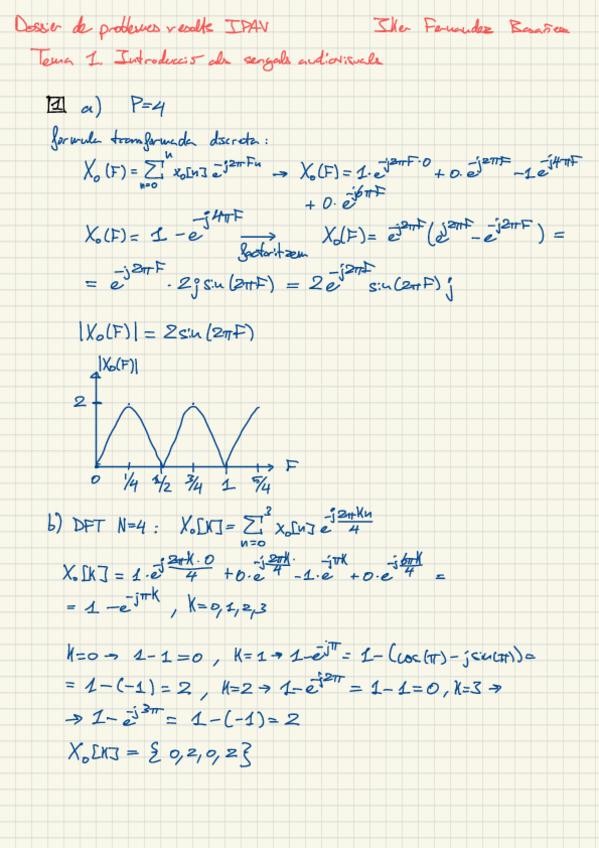 Dossier de problemes resolts IPAV Iker Fernandez
Tema 1. Introducció als senyals audiovisuals
1 a) P=4
formula transformada discreta:
X₀(F) = Σ_{n=0}^{n} x₀[n] e^{-j2πFn} → X₀(F) = 1·e^{-j2πF·0} + 0·e^{-j2πF} - 1e^{-j4πF}
+ 0·e^{-j6πF}
X₀(F) = 1 - e^{-j4πF} ⟶ factoritzem X₀(F) = e^{-j2πF}(e^{j2πF} - e^{-j2πF}) =
= e^{-j2πF} · 2j sin(2πF) = 2e^{-j2πF} sin(2πF) j
|X₀(F)| = 2sin(2πF)
|X₀(F)|
2
F
0 1/4 1/2 3/4 1 5/4
b) DFT N=4: X₀[K] = Σ_{n=0}^{3} x₀[n] e^{-j2πKn/4}
X₀[K] = 1·e^{-j2πK·0/4} + 0·e^{-j2πK/4} - 1·e^{-jπK} + 0·e^{-j6πK/4} =
= 1 - e^{-jπK}, K=0,1,2,3
K=0 → 1-1=0, K=1 → 1-e^{-jπ} = 1-(cos(π)-jsin(π)) =
= 1-(-1) = 2, K=2 → 1-e^{-j2π} = 1-1=0, K=3 →
→ 1-e^{-j3π} = 1-(-1) = 2
X₀[K] = {0,2,0,2}